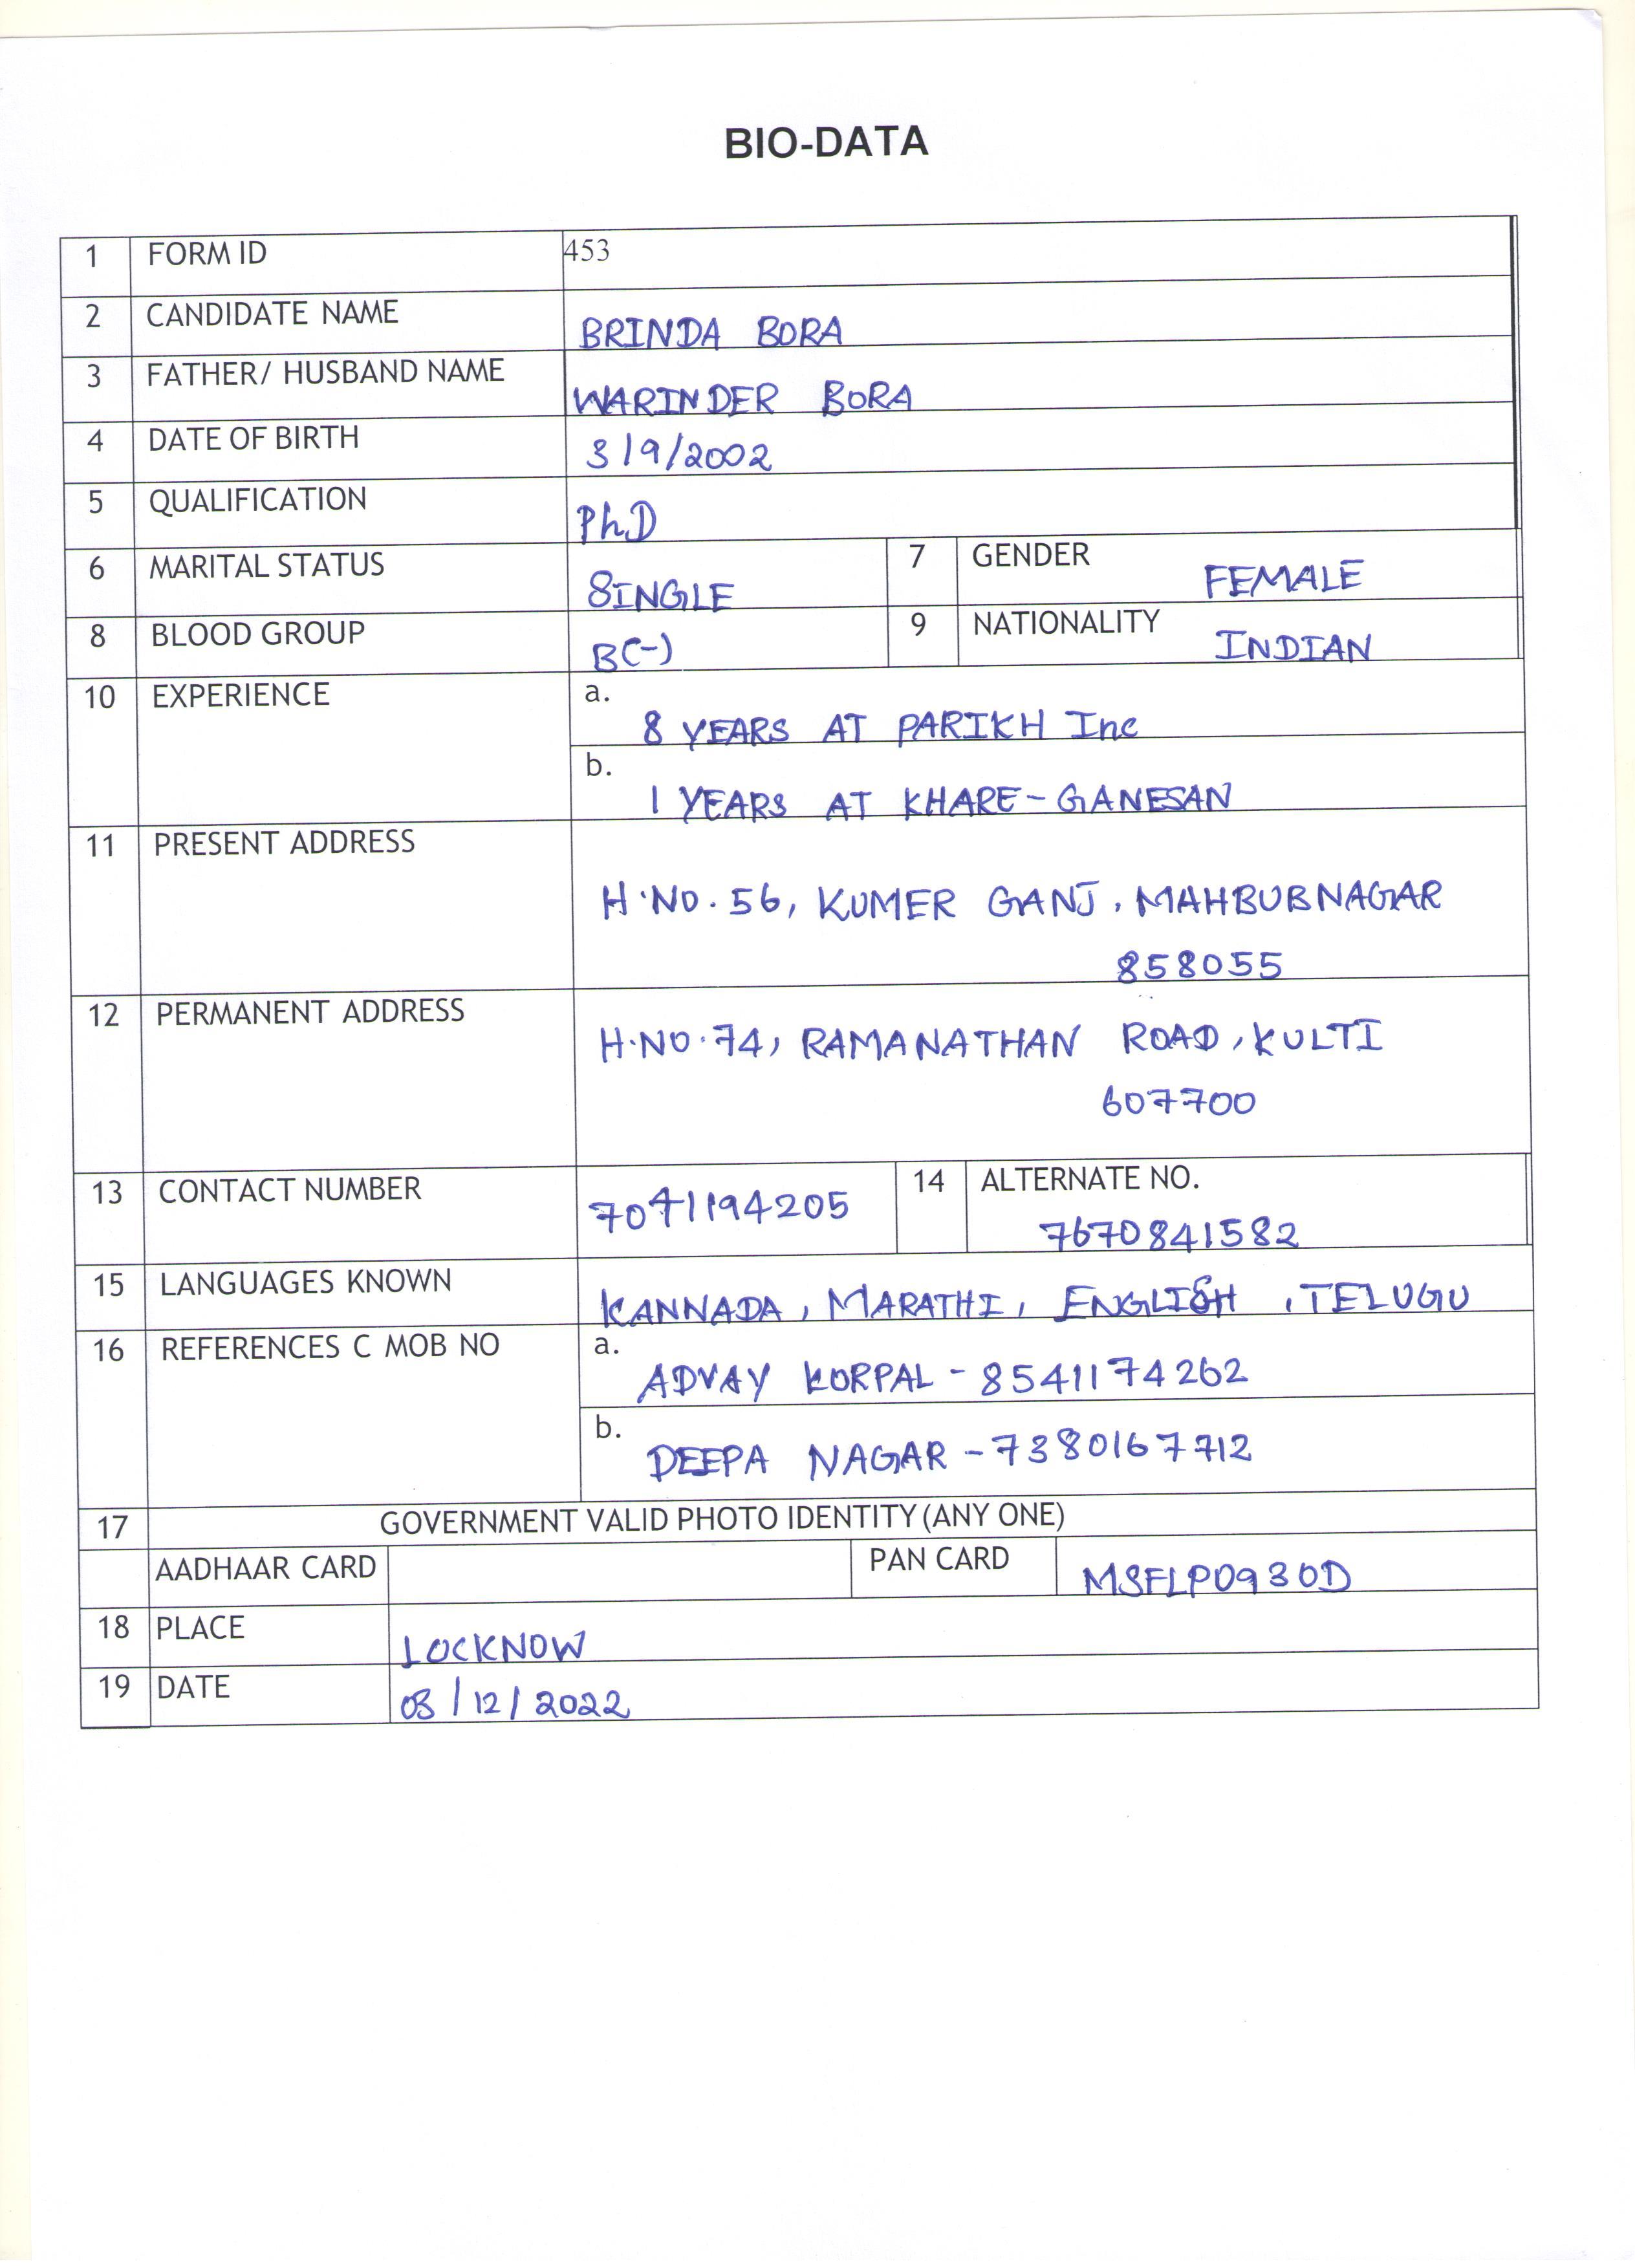 BIO-DATA
1 FORM ID 453
2 CANDIDATE NAME BRINDA BORA
3 FATHER/ HUSBAND NAME WARINDER BORA
4 DATE OF BIRTH 3/9/2002
5 QUALIFICATION PhD
6 MARITAL STATUS SINGLE 7 GENDER FEMALE
8 BLOOD GROUP B(-) 9 NATIONALITY INDIAN
10 EXPERIENCE a. 8 YEARS AT PARIKH Inc
b. 1 YEARS AT KHARE-GANESAN
11 PRESENT ADDRESS H.NO.56, KUMER GANJ, MAHBUBNAGAR
858055
12 PERMANENT ADDRESS H.NO.74, RAMANATHAN ROAD, KULTI
607700
13 CONTACT NUMBER 7041194205 14 ALTERNATE NO. 7670841582
15 LANGUAGES KNOWN KANNADA, MARATHI, ENGLISH, TELUGU
16 REFERENCES C MOB NO a. ADVAY KORPAL - 8541174262
b. DEEPA NAGAR - 7380167712
17 GOVERNMENT VALID PHOTO IDENTITY (ANY ONE)
AADHAAR CARD PAN CARD MSFLP0930D
18 PLACE LOCKNOW
19 DATE 03/12/2022